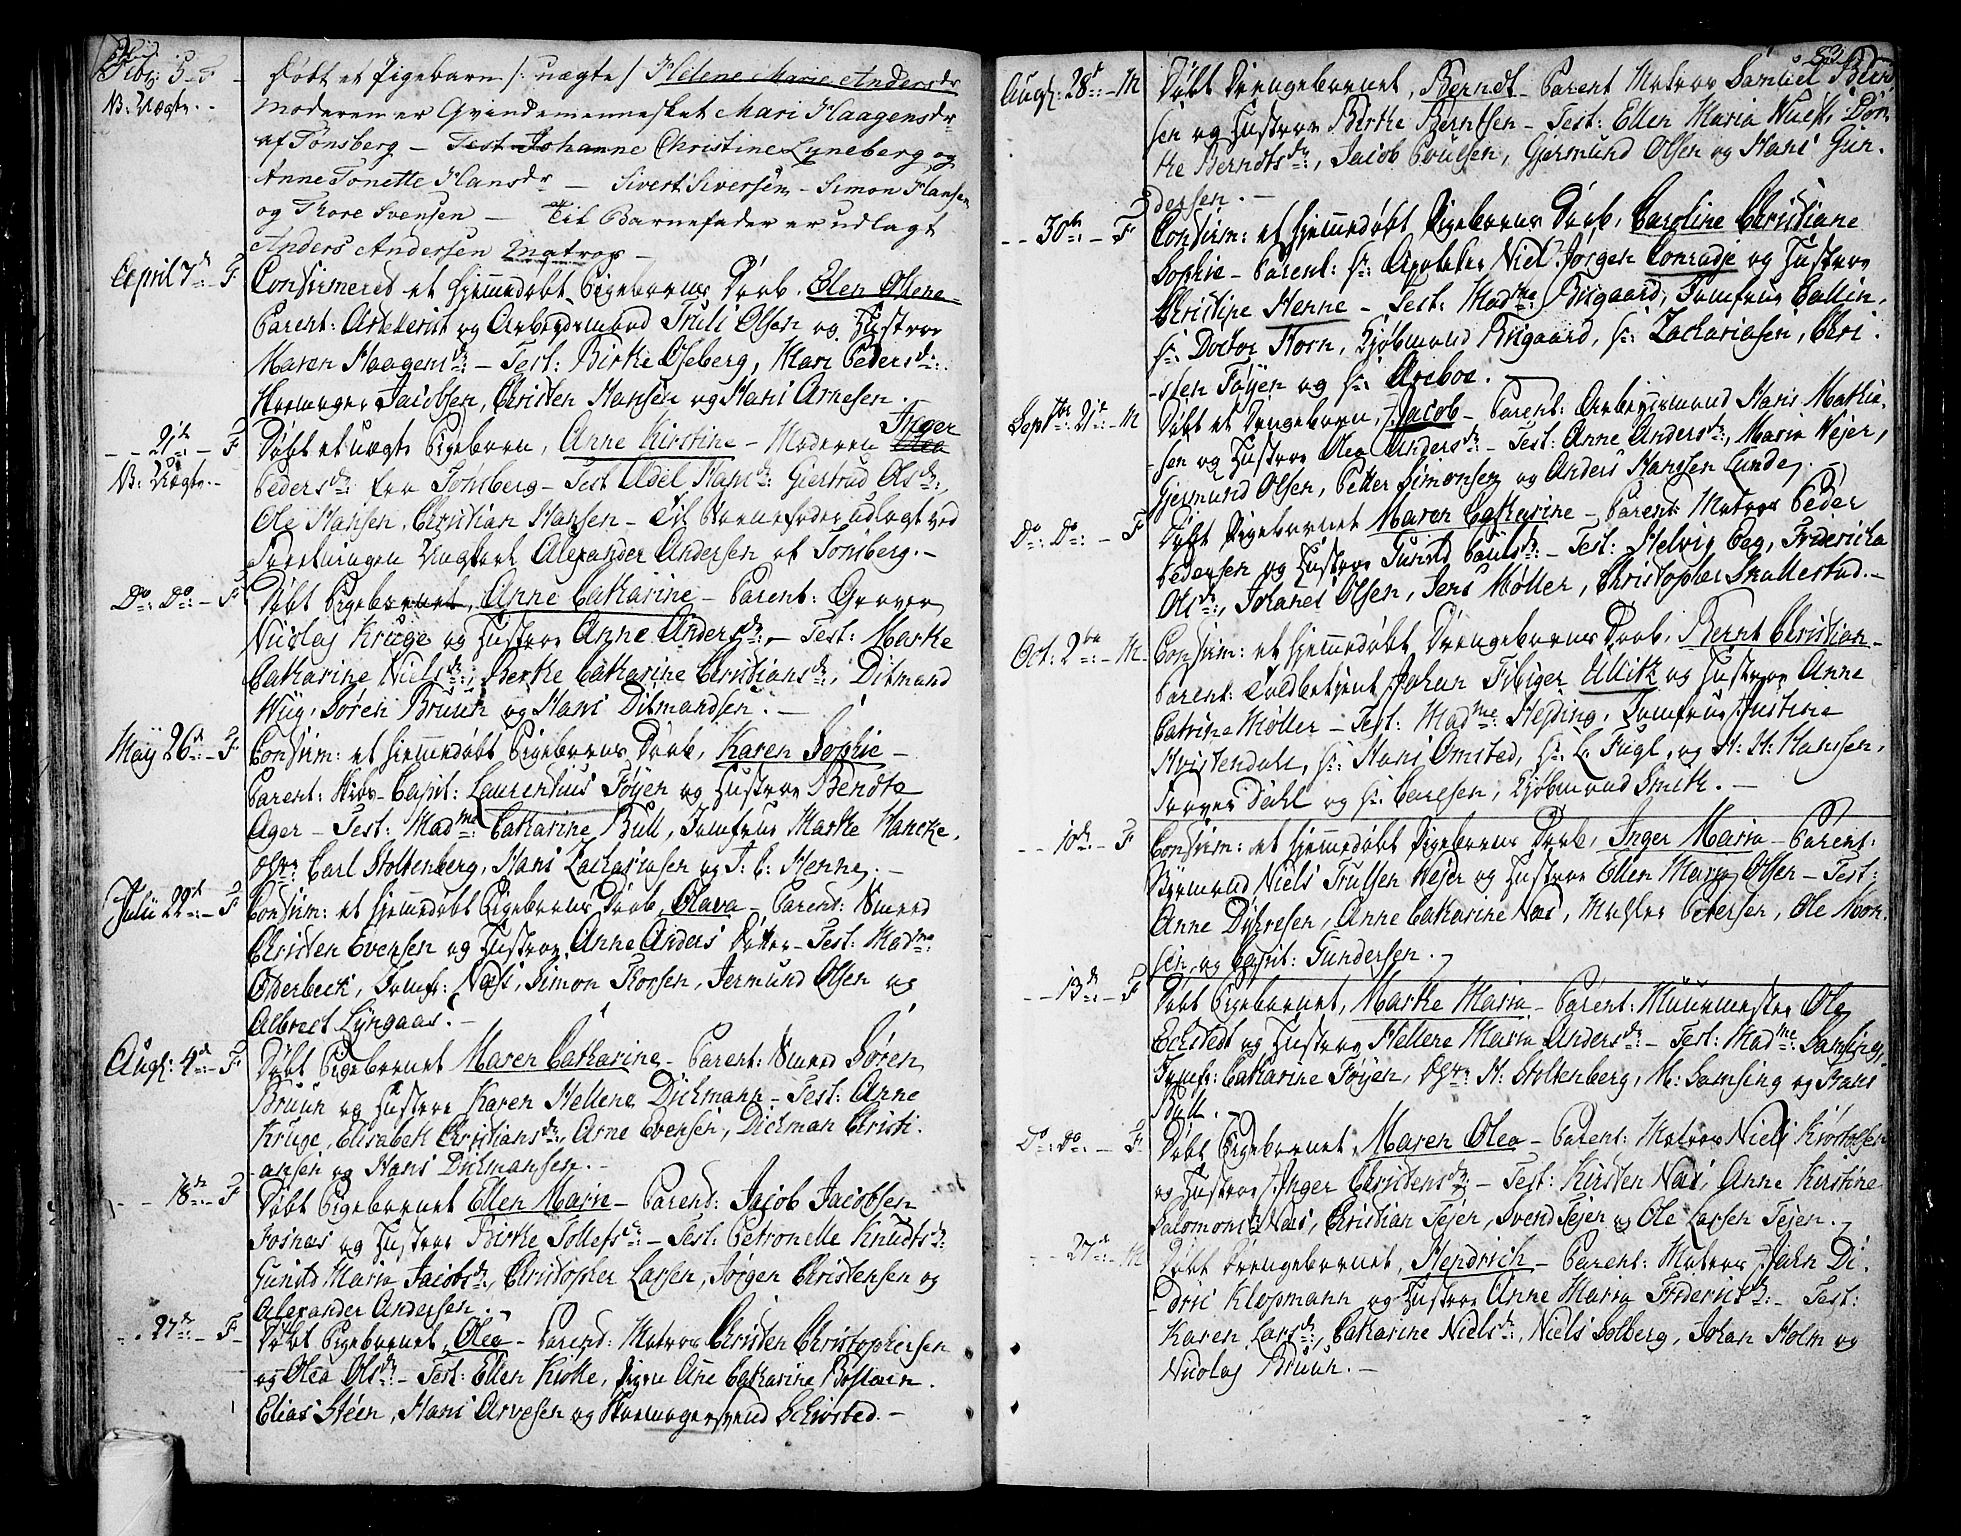 Feb: 5 - F -
Døbt et Pigebarn /: uægte / Helene Marie Andersdr
N: Uægte. -
Moderen er Qvindemennesket Mari Haagensdr
af Tønsberg - Test Johanne Christine Lyneberg og
Anne Tonette Hansdr - Sivert Siversen - Simon Hansen
og Thore Svensen - Til Barnefader er udlagt
Anders Andersen Matros -
April 7d - F
Confirmeret et hjemmedøbt Pigebarns Daab, Elen Olene -
Parent: Artillerist og Arbeydsmand Truls Olsen og Hustroe
Maren Haagensdr: - Test: Birke Oseberg, Mari Pedersdr: -
Skomager Jacobsen, Christen Hansen og Hans Arnesen. -
- - 21de - F
Døbt et uægte Pigebarn, Anne Kirstine - Moderen Inger
N: Uægte. -
Pedersdr: fra Tønsberg - Test Adel Hansdr: Giertrud Olsdr:,
Ole Hansen, Christian Hansen - Til Barnefader udlagt ved
Forretningen Ungkarl Alexander Andersen af Tønsberg. -
Do: Do: - F
Døbt Pigebarnet, Anne Catharine - Parent: Graver
Nicolay Kruge og Hustroe Anne Andersdr: - Test: Marthe
Catharine Nielsdr:, Berthe Catharine Christiansdr:, Ditmand
Wüg, Søren Bruun og Hans Ditmandsen. -
May 26de - F
Confirm: et hjemmedøbt Pigebarns Daab, Karen Sophie -
Parent: Skibs-Capit: Laurentius Føyen og Hustroe Bendte
Ager - Test: Madme Catharine Bull, Jomfrue Marthe Hancke,
Hrr Carl Stoltenberg, Hans Zachariasen og J. C: Henne. -
Julii 22de - F
Confirm: et hjemmedøbt Pigebarns Daab, Olava - Parent: Smeed
Christen Evensen og Hustroe Anne Anders Datter - Test: Madme:
Oderbeck, Jomfr: Næss, Simon Thorsen, Jermund Olsen og
Albrect Lyngaas. -
Aug: 4de - F
Døbt Pigebarnet Maren Catharine - Parent: Smeed Søren
Bruun og Hustroe Karen Hellene Dickmann - Test: Anne
Kruge, Elisabeth Christiansdr:, Arne Evensen, Dickman Christi-
ansen og Hans Dickmansen. -
- - 18de - F
Døbt Pigebarnet Ellen Marie - Parent: Jacob Jacobsen
Fosnæs og Hustroe Birthe Tollefsdr: - Test: Petronelle Knudtsdr:
Gunild Maria Jacobsdr:, Christopher Larsen, Jørgen Christensen og
Alexander Andersen. -
- - 27de - F
Døbt Pigebarnet, Olea - Parent: Matros Christen Christophersen
og Olea Olsdr - Test: Ellen Krøtte, Pigen Ane Catharine Bostein,
Elias Steen, Hans Arvesen og Skomagersvend Schiøsted. -
83
Aug: 28de - M
Døbt Drengebarnet, Berndt - Parent Matros Samuel
sen og Hustroe Birthe Berntsen - Test: Ellen Maria Dor-
the Berndtsdr:, Jacob Poulsen, Gjermund Olsen og Hans Gun-
dersen. -
- - 30te - F
Confirm: et hjemmedøbt Pigebarns Daab, Caroline Christiane
Sophie - Parent: Hr: Apoteker Niels Jørgen Conradje og Hustroe
Christine Henne - Test: Madme: Bisgaard, Jomfrue Callin,
Hr: Doctor Korn, Kjøbmand Bisgaard, Hr: Zachariasen, Chri-
sten Føyen og Hr: Areboe. -
Septbr: 21de - M
Døbt et Drengebarn, Jacob - Parent: Arbeydsmand Hans Mathie-
sen og Hustroe Olea Andersdr: - Test: Anne Andersdr:, Maria Vejer,
Gjermund Olsen, Petter Simonsen og Anders Hanssen Lunde. -
Do: Do: - F
Døbt Pigebarnet Maren Catharine - Parent Matros Peder
Pedersen og Hustroe Gunild Paulsdr: - Test: Helvig Bag, Friderica
Olsdr:, Johanes Olsen, Jens Møller, Christopher Skallestad. -
Oct: 2den - M
Confirm: et hjemmedøbt Drengebarns Daab, Bernt Christian -
Parent: Toldbetjent Johan Fibiger Ullitz og Hustroe Anne
Catrine Møller - Test: Madme: Hesding, Jomfrue Justine
Kvistendall, Hr: Hans Omsted, Hr: L: Fugl, og H: H: Hanssen,
Farver Dahl og Hr: Carlsen, Kjøbmand Smith. -
- - 10de - F
Confirm: et hjemmedøbt Pigebarns Daab, Inger Maria - Parent:
Byemand Niels Trulsen Vejer og Hustroe Ellen Maria Olsen - Test:
Anne Didresen, Anne Catharine Næs, Petersen, Ole Mon-
sen, og Capit: Gundersen. -
- - 13de - F
Døbt Pigebarnet, Marthe Maria - Parent: Muurmester Ole
Eckstedt og Hustroe Hellene Maria Andersdr: - Test: Madme: Samsing,
Jomfr: Catharine Føyen, Hrr H. Stoltenberg, M: Samsing og Hans
Bull. -
Do: Do: - F
Døbt Pigebarnet, Maren Olea - Parent: Matros Niels
og Hustroe Inger Christensdr: - Test: Kirsten Næs, Anne Kirstine
Salomonsdr Næs, Christian Tejen, Svend Tejen og Ole Larsen Tejen. -
- - 27de - M
Døbt Drengebarnet, Hendrich - Parent: Matros Jahn Di-
dric Klopmann og Hustroe Anne Maria Fridericsdr: - Test:
Karen Larsdr:, Catharine Nielsdr:, Niels Solberg, Johan Holm og
Nicolay Bruun. -